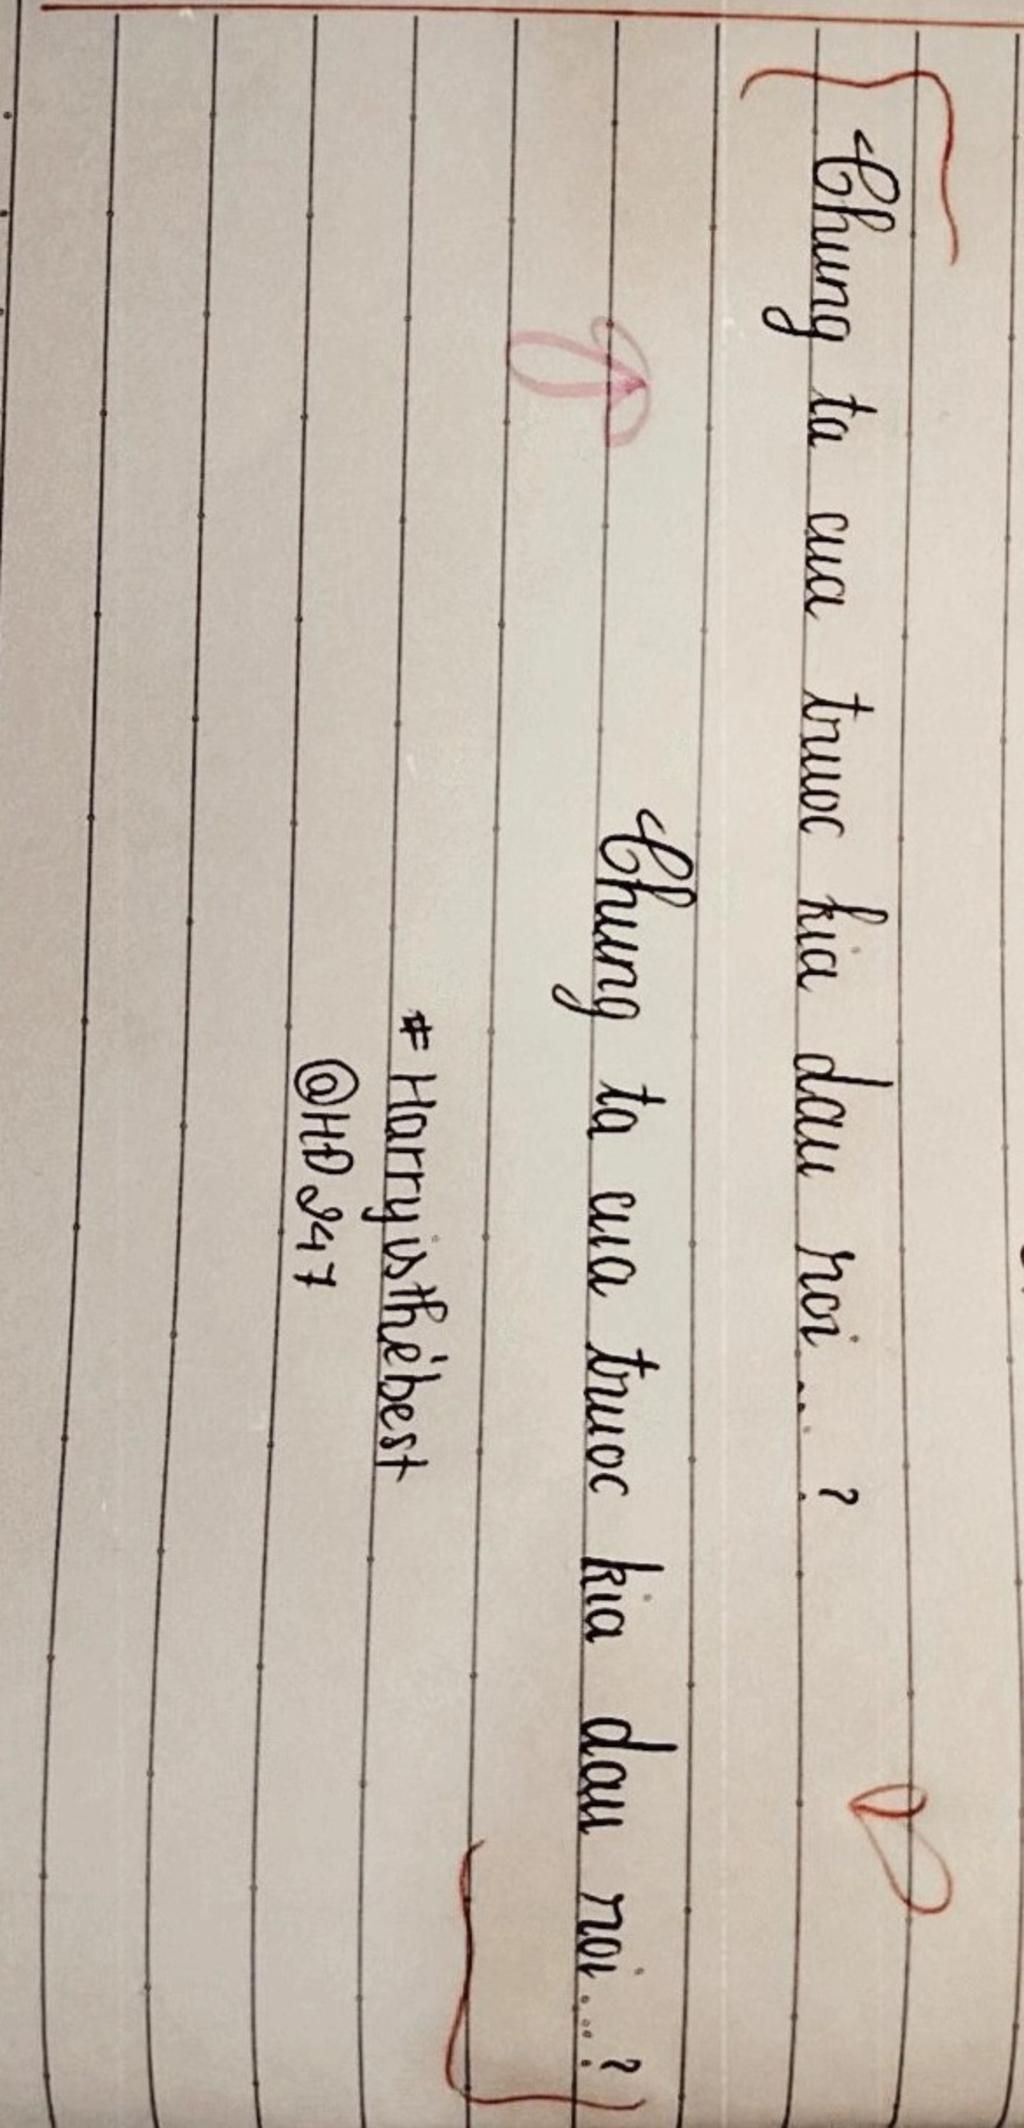 Chung ta cua truoc kia dau roi....?
Chung ta cua truoc kia dau roi....?
#Harryisthebest
@HD247